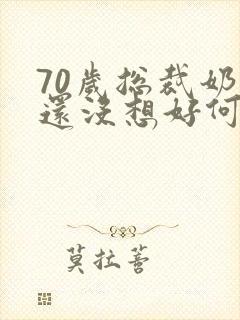 70歲總裁奶
還沒想好何
莫拉菩